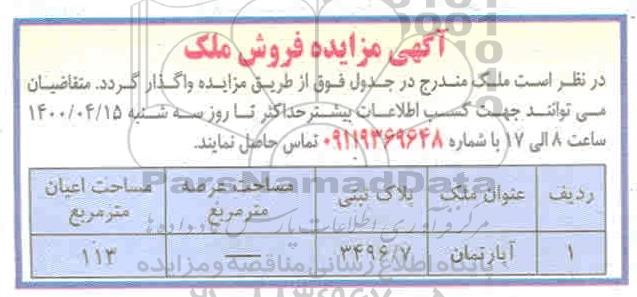 آگهی مزایده فروش ملک
در نظر است ملک مندرج در جدول فوق از طریق مزایده واگذار گردد. متقاضیان
می توانند جهت کسب اطلاعات بیشتر حداکثر تا روز سه شنبه ۱۴۰۰/۰۴/۱۵
ساعت ۸ الی ۱۷ با شماره ۰۹۱۱۹۳۶۹۶۴۸ تماس حاصل نمایند.
ردیف عنوان ملک پلاک ثبتی مساحت عرصه مترمربع مساحت اعیان مترمربع
۱ آپارتمان ۳۴۹۶/۷ — ۱۱۳
ParsNamadData
مرکز فرآوری اطلاعات پارس نماد داده ها
پایگاه اطلاع رسانی مناقصه و مزایده